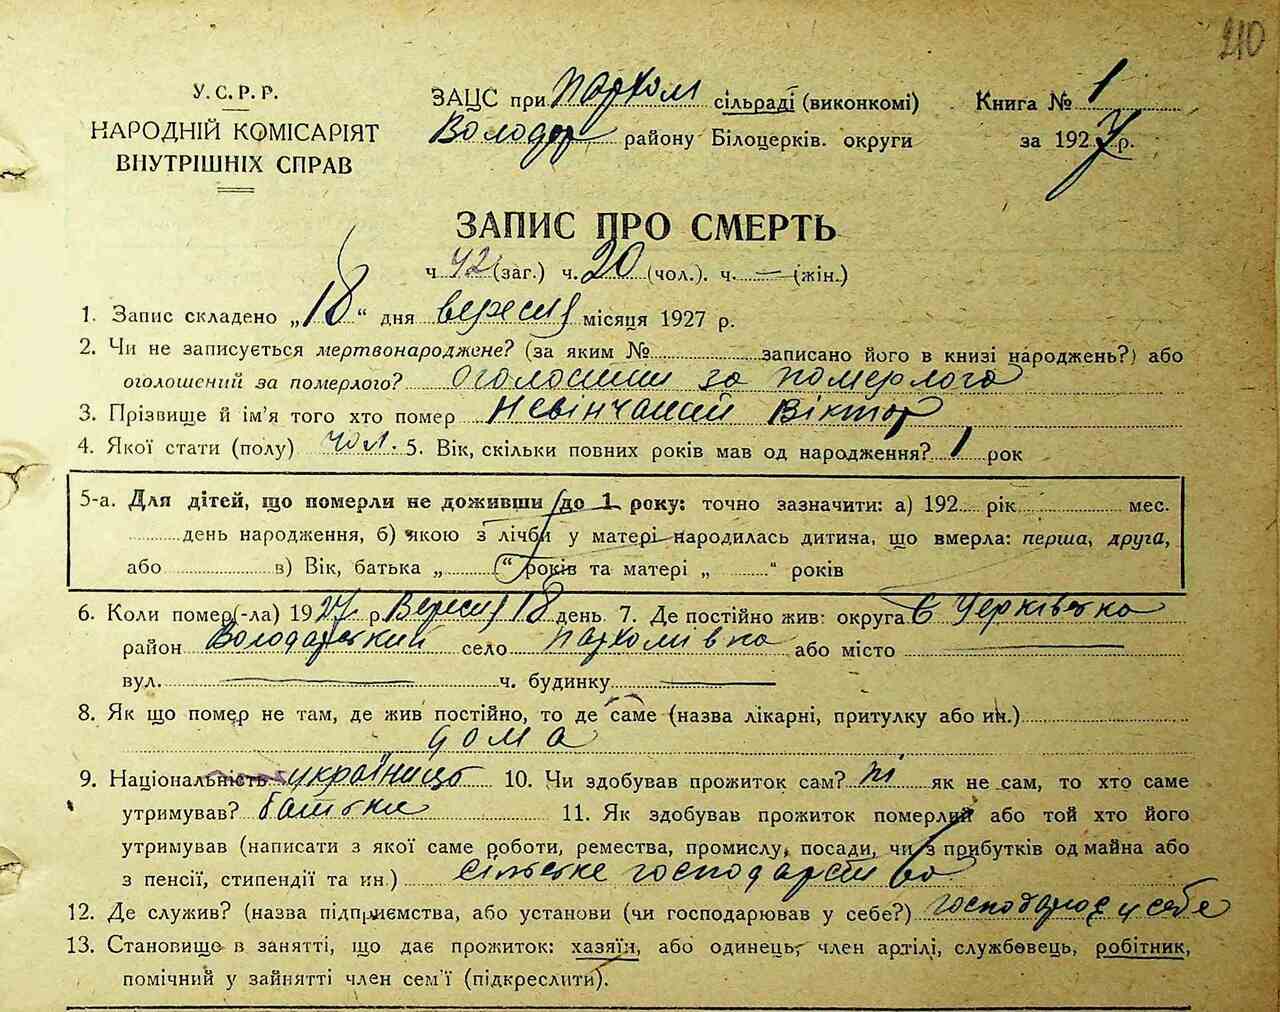 210
У. С. Р. Р.
НАРОДНІЙ КОМІСАРІЯТ
ВНУТРІШНІХ СПРАВ
ЗАЦС при Пархом сільраді (виконкомі) Книга № 1
Володар району Білоцерків. округи за 1927 р.
ЗАПИС ПРО СМЕРТЬ
ч 42 (заг.) ч. 20 (чол.). ч. — (жін.)
1. Запис складено „18“ дня вересня місяця 1927 р.
2. Чи не записується мертвонароджене? (за яким № записано його в книзі народжень?) або
оголошений за померлого? оголошений за померлого
3. Прізвище й ім’я того хто помер Невінчаний Віктор
4. Якої стати (полу) чол. 5. Вік, скільки повних років мав од народження? 1 рок
5-а. Для дітей, що померли не доживши до 1 року: точно зазначити: а) 192 рік мес.
день народження, б) якою з лічби у матері народилась дитина, що вмерла: перша, друга,
або в) Вік, батька „ “ років та матері „ “ років
6. Коли помер(-ла) 1927 р. Вересня 18 день 7. Де постійно жив: округа Б Церківська
район Володарський село Пархомівка або місто —
вул. — ч. будинку —
8. Як що помер не там, де жив постійно, то де саме (назва лікарні, притулку або ин.)
дома
9. Національність українець 10. Чи здобував прожиток сам? ні як не сам, то хто саме
утримував? батьки 11. Як здобував прожиток померлий або той хто його
утримував (написати з якої саме роботи, ремества, промислу, посади, чи з прибутків од майна або
з пенсії, стипендії та ин.) сільське господарство
12. Де служив? (назва підприємства, або установи (чи господарював у себе?) господарює у себе
13. Становище в занятті, що дає прожиток: хазяїн, або одинець, член артілі, службовець, робітник,
помічний у зайнятті член сем’ї (підкреслити).